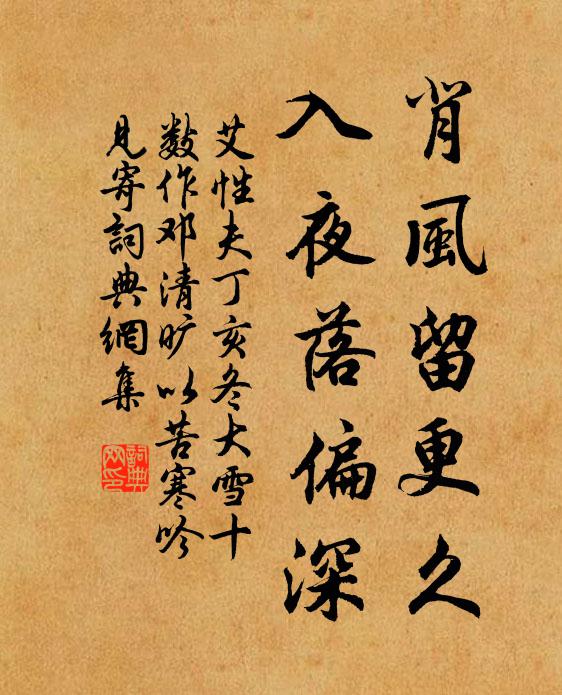 背風留更久
入夜落偏深
艾性夫丁亥冬大雪十
数作邓清旷以苦寒吟
见寄詞典網集
詞典
网印